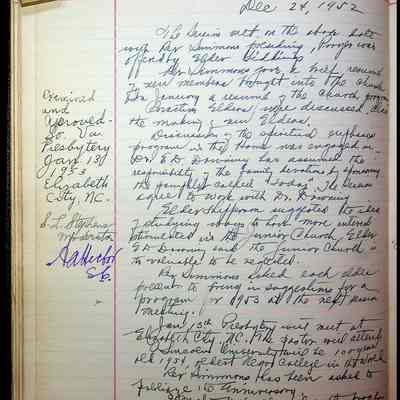 Dec 24, 1952
The Session met on the above date
with Rev Simmons presiding, Prayer was
offered by Elder Giddings
Rev Simmons gave a brief resume
of new members brought into the Church
a resume of the Church program
Elders were discussed, also
the making of new Elders.
Discussion of the spiritual
program in the Home was engaged in.
Dr. E.D. Downing has assumed the
responsibility of the family devotions by sponsoring
the pamphlet called "Today". The Session
agree to work with Dr. Downing
Elder suggested the idea
of developing ways to have more interest
in the Junior Church, Elder
ED Downing said the Junior Church is
to valuable to be neglected.
Rev Simmons asked each elder
present to bring in suggestions for a
program for 1953 at the next
meeting.
Jan 13th Presbytery will meet at
Elizabeth City, N.C. The Pastor will attend
Lincoln University will be 100 years
old 1954 oldest Negro College in the World
Rev Simmons has been asked to
its Anniversary
Examined
and
Approved—
So. Va.
Presbytery
Jan 13,
1953
Elizabeth
City, N.C.
S. L. Stephens
Moderator
S.C.